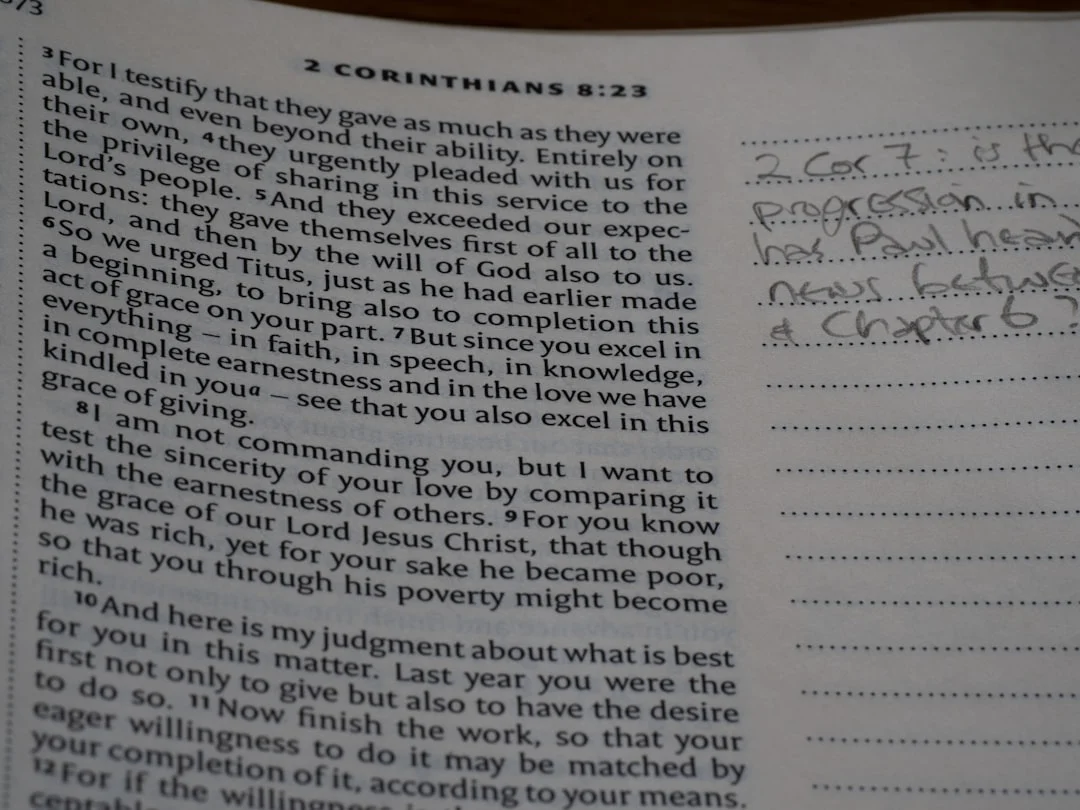 2 CORINTHIANS 8:23
³For I testify that they gave as much as they were
able, and even beyond their ability. Entirely on
their own, ⁴they urgently pleaded with us for
the privilege of sharing in this service to the
Lord's people. ⁵And they exceeded our expec-
tations: they gave themselves first of all to the
Lord, and then by the will of God also to us.
⁶So we urged Titus, just as he had earlier made
a beginning, to bring also to completion this
act of grace on your part. ⁷But since you excel in
everything – in faith, in speech, in knowledge,
in complete earnestness and in the love we have
kindled in youᵃ – see that you also excel in this
grace of giving.
⁸I am not commanding you, but I want to
test the sincerity of your love by comparing it
with the earnestness of others. ⁹For you know
the grace of our Lord Jesus Christ, that though
he was rich, yet for your sake he became poor,
so that you through his poverty might become
rich.
¹⁰And here is my judgment about what is best
for you in this matter. Last year you were the
first not only to give but also to have the desire
to do so. ¹¹Now finish the work, so that your
eager willingness to do it may be matched by
your completion of it, according to your means.
¹²For if the willingness
2 Cor 7: is
progression in
has Paul
news
& Chapter 6?